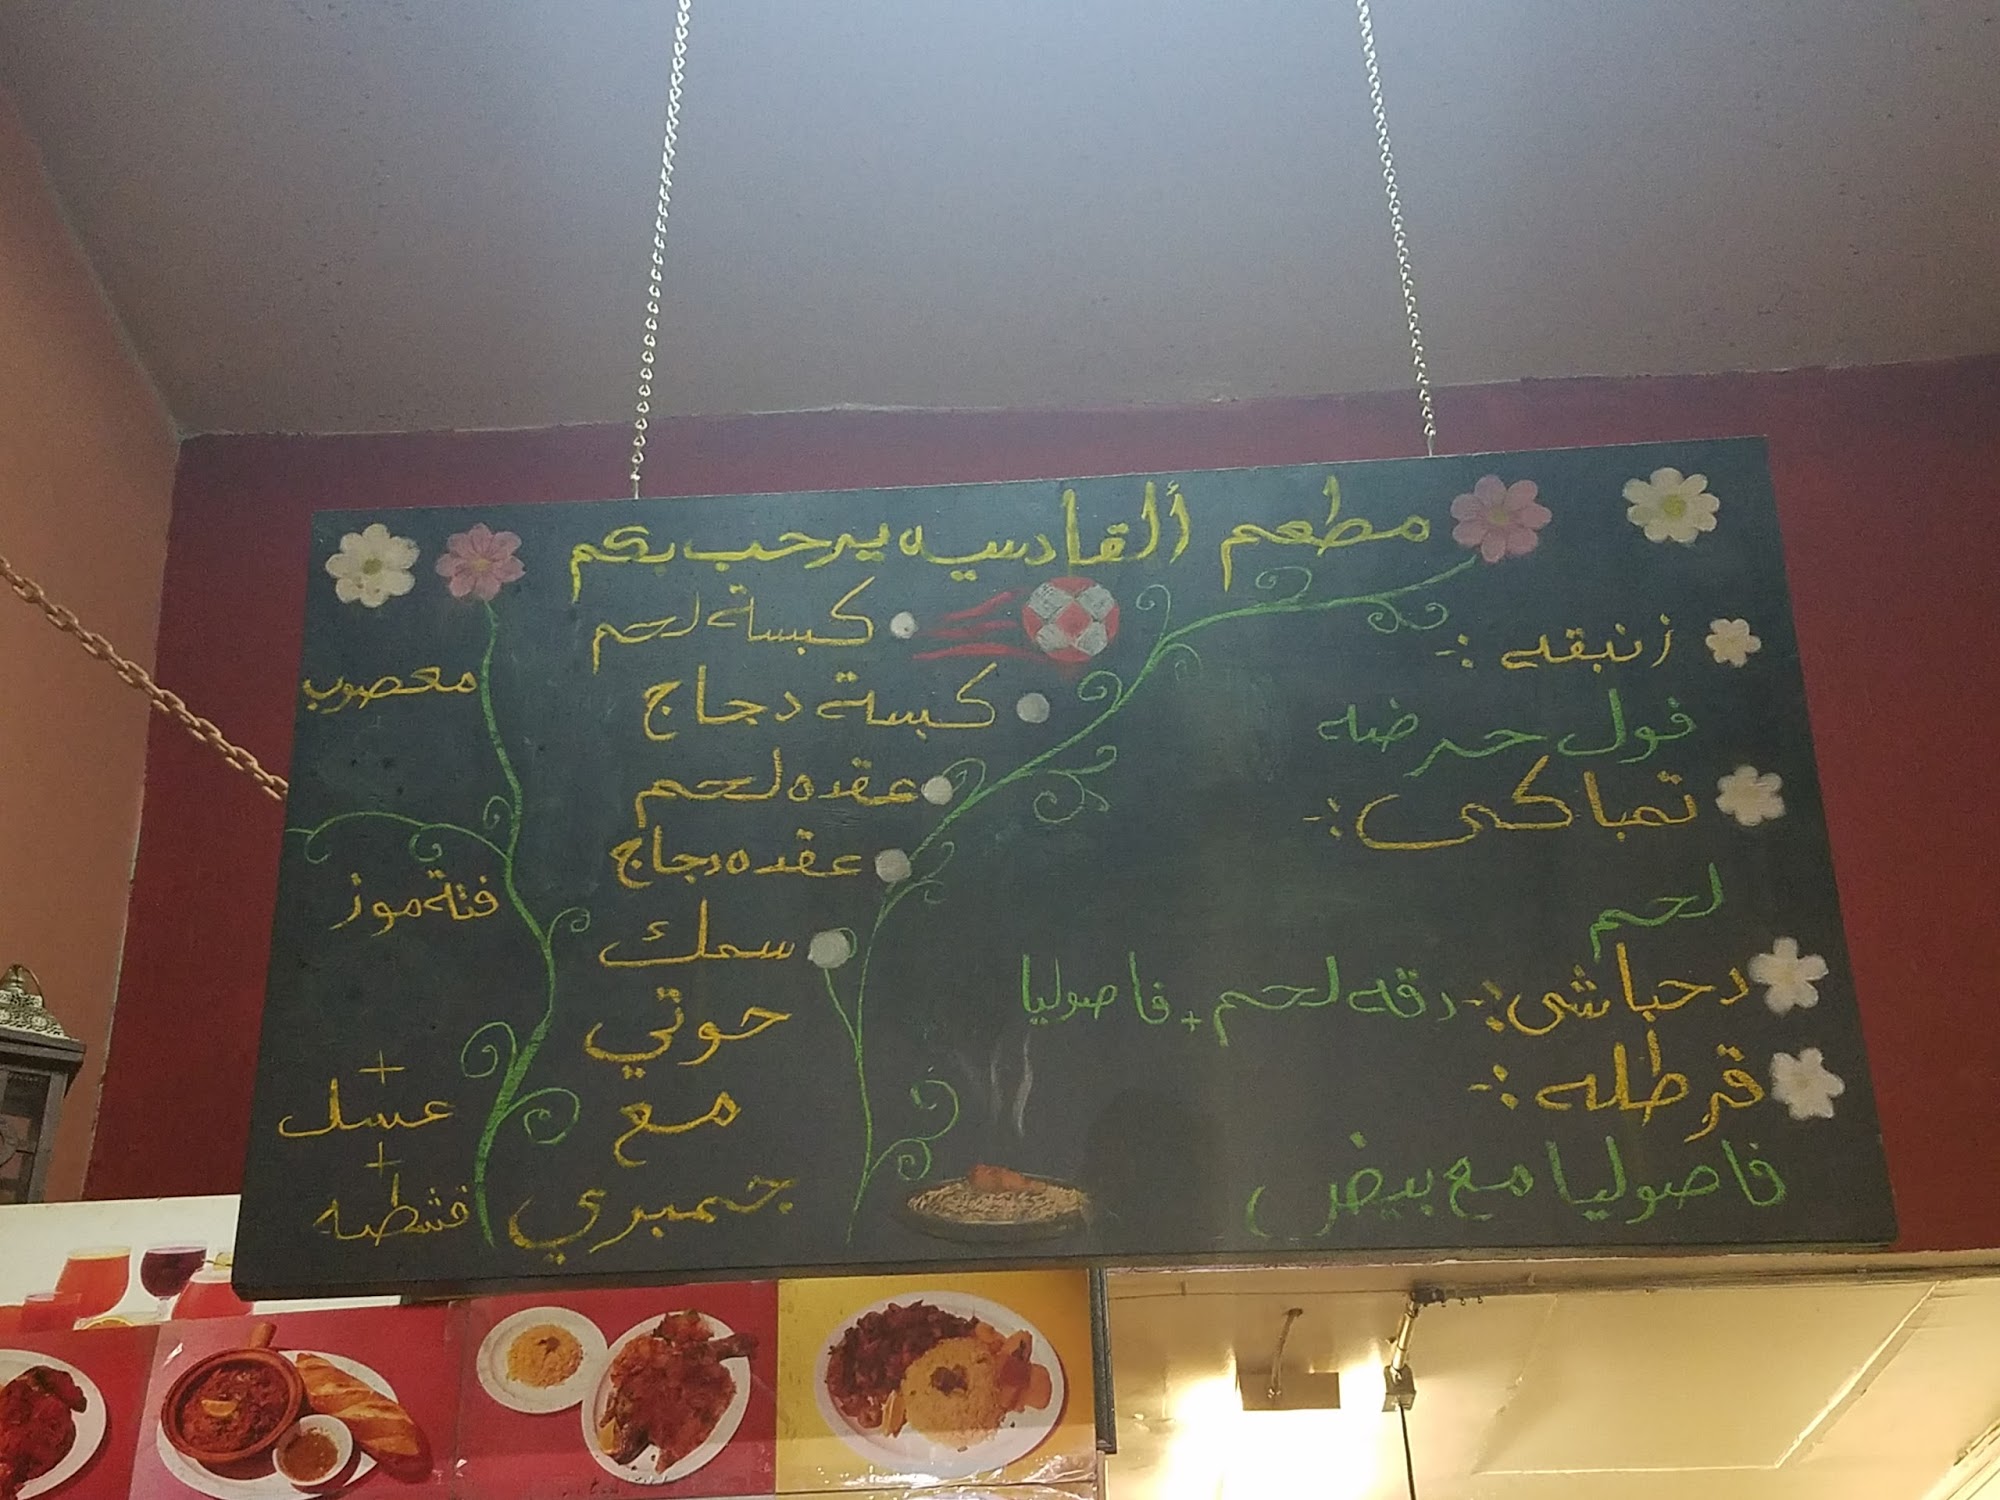 مطعم ألقادسيه يرحب بكم
زنبقه :-
فول حرضه
تمباكي :-
لحم
دحباشي :- دقه لحم + فاصوليا
قرطله :-
فاصوليا مع بيض
كبسة لحم
كبسة دجاج
عقده لحم
عقده دجاج
سمك
حوتي
مع
جمبري
معصوب
فتة موز
+
عسل
+
قشطه